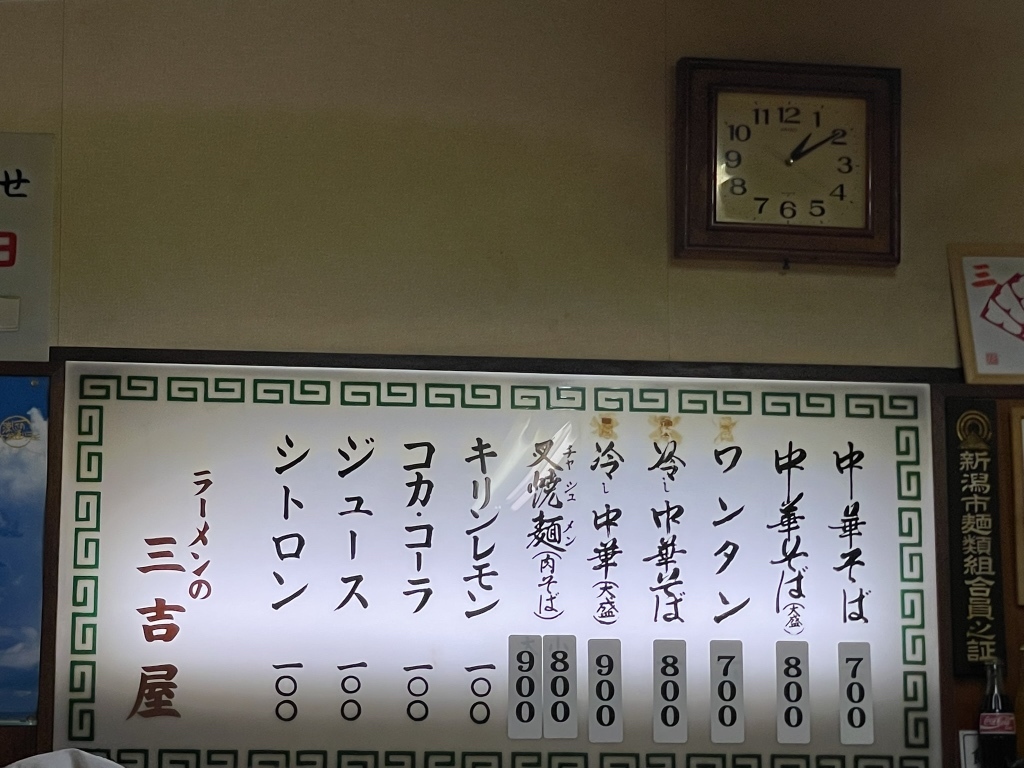 中華そば 700
中華そば(大盛) 800
ワンタン 700
冷し中華そば 800
冷し中華(大盛) 900
叉焼麺(肉そば) 800 900
チャシュメン
キリンレモン 一〇〇
コカ・コーラ 一〇〇
ジュース 一〇〇
シトロン 一〇〇
ラーメンの
三吉屋
11 12 1
10 2
9 3
8 4
7 6 5
せ
日
三
新潟市麺類組合員之証